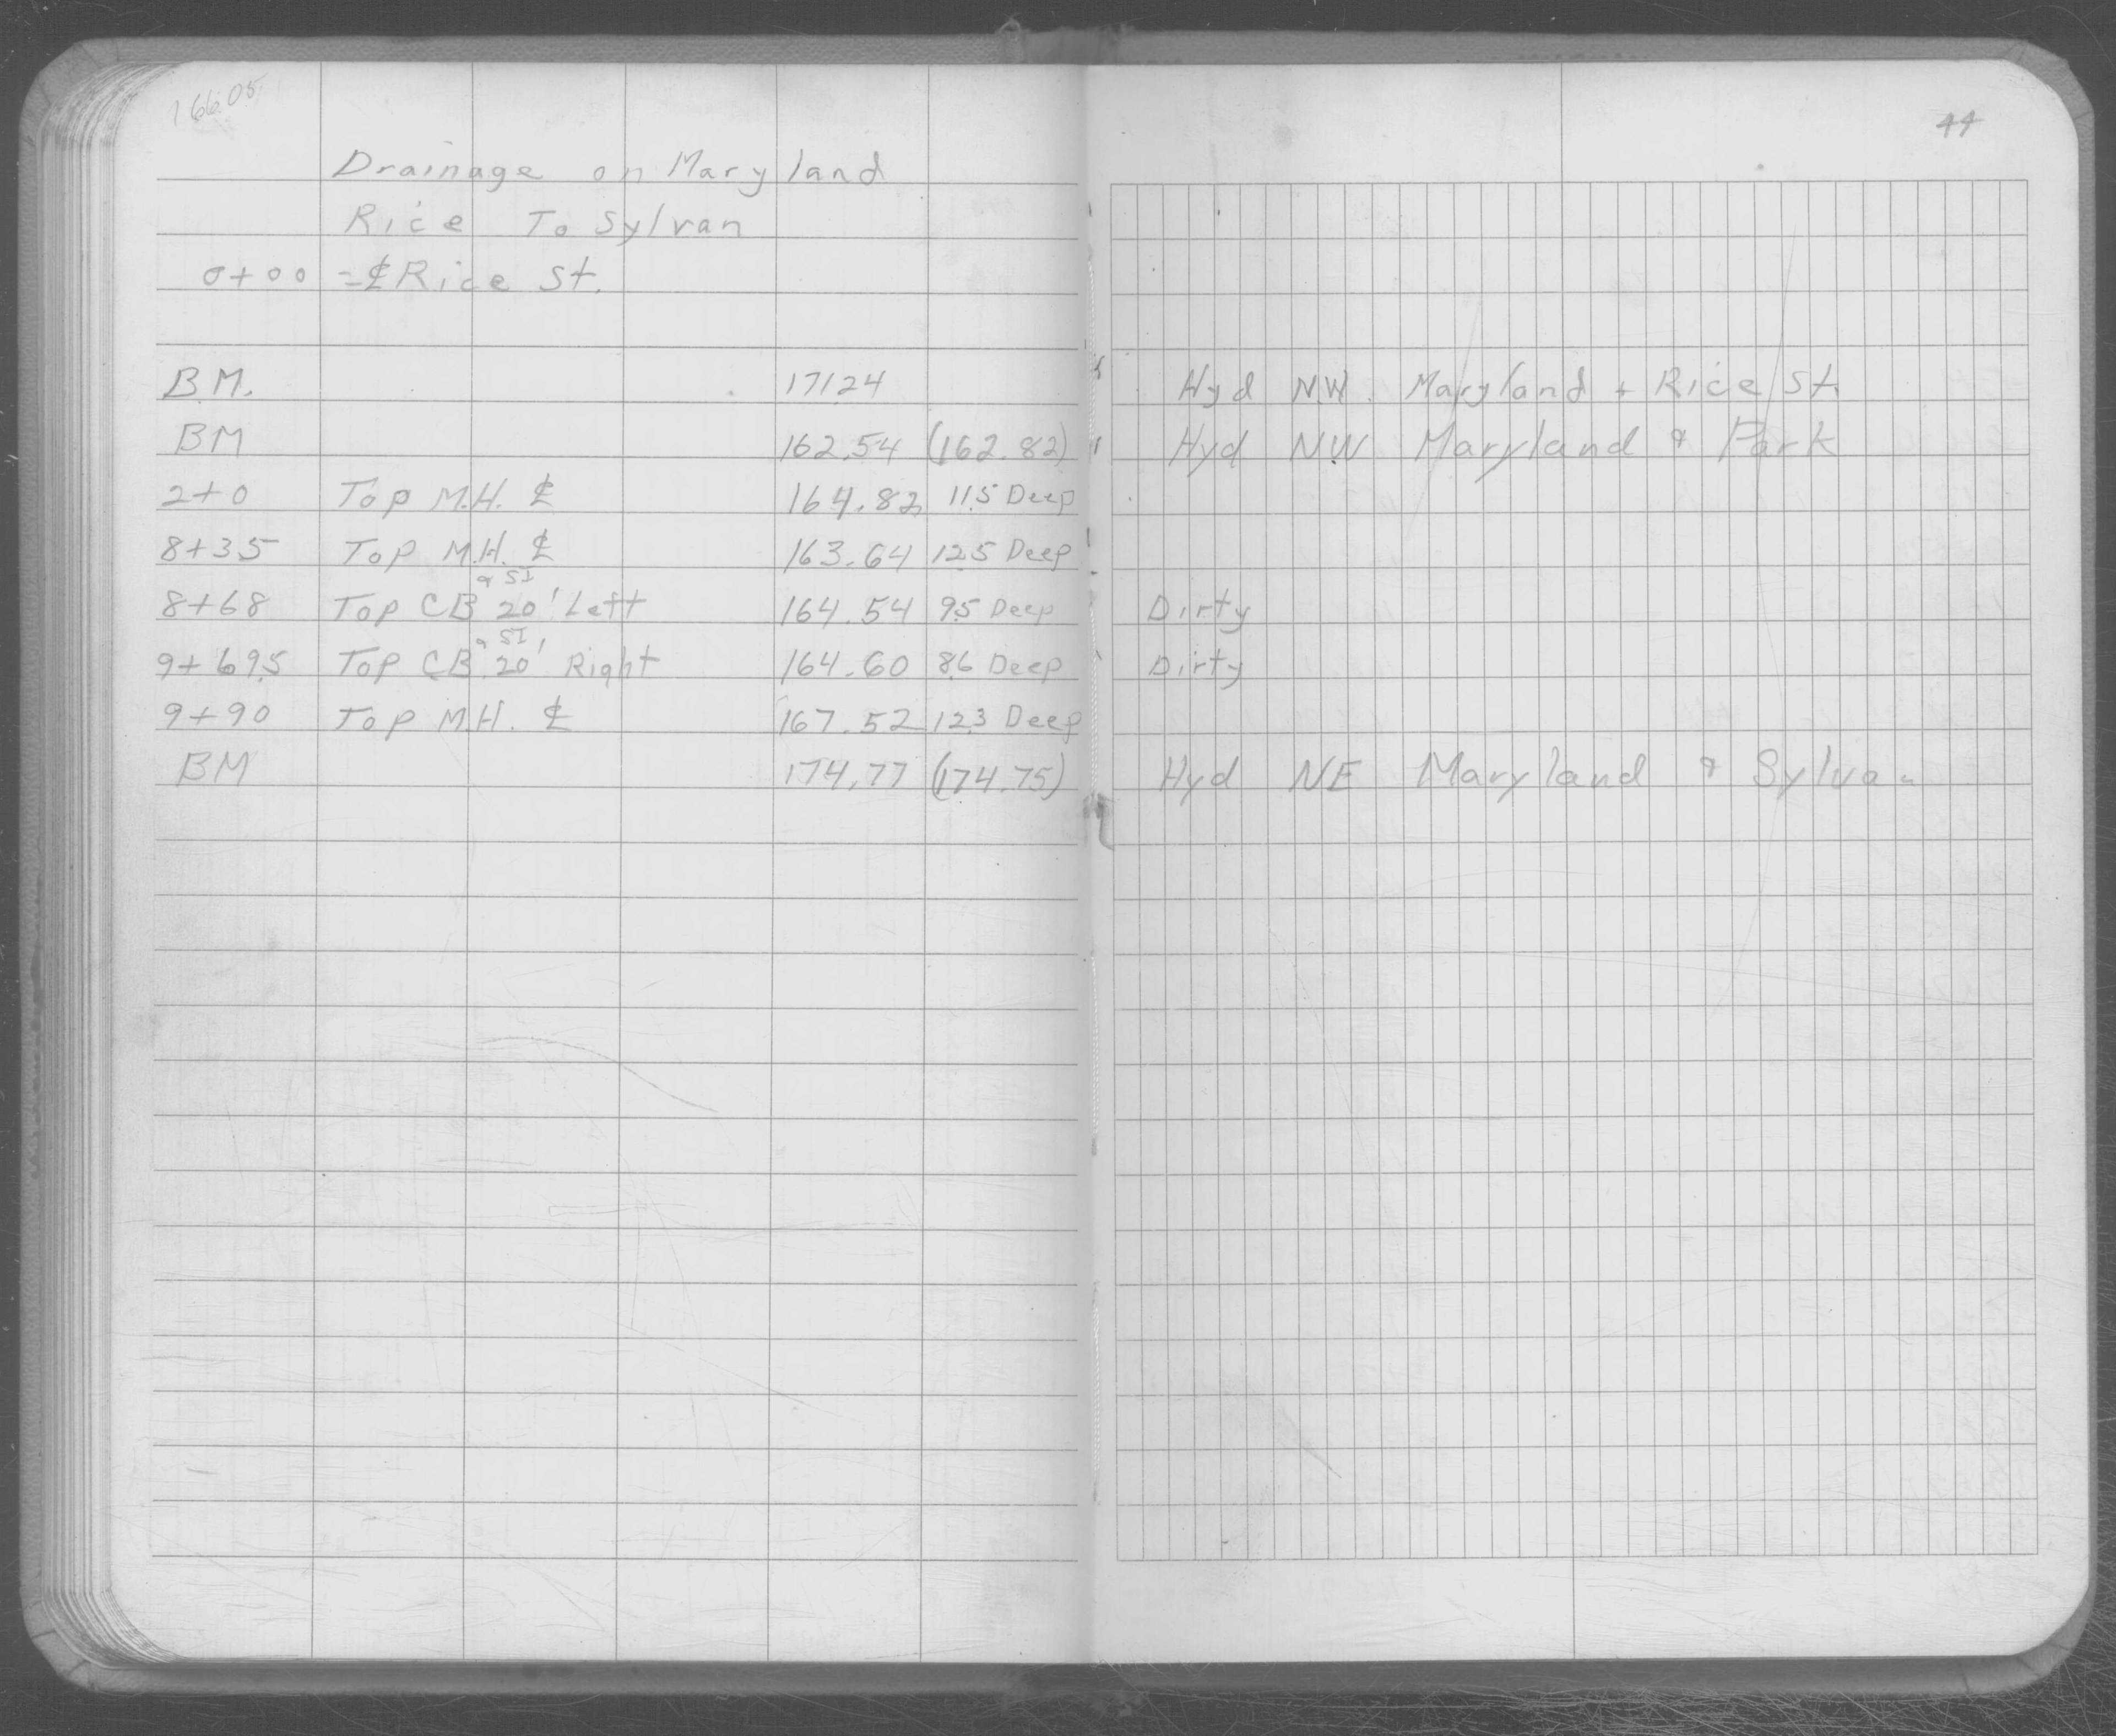 166.05
44
Drainage on Maryland
Rice To Sylvan
0+00 = ℄ Rice St.
B.M. 171.24 Hyd N.W. Maryland + Rice St.
BM 162.54 (162.82) Hyd N.W. Maryland & Park
2+0 Top M.H. ℄ 164.82 11.5 Deep
8+35 Top M.H. ℄ 163.64 12.5 Deep
8+68 Top CB & SI 20' Left 164.54 9.5 Deep Dirty
9+69.5 Top CB & SI 20' Right 164.60 8.6 Deep Dirty
9+90 Top M.H. ℄ 167.52 12.3 Deep
BM 174.77 (174.75) Hyd NE Maryland & Sylvan